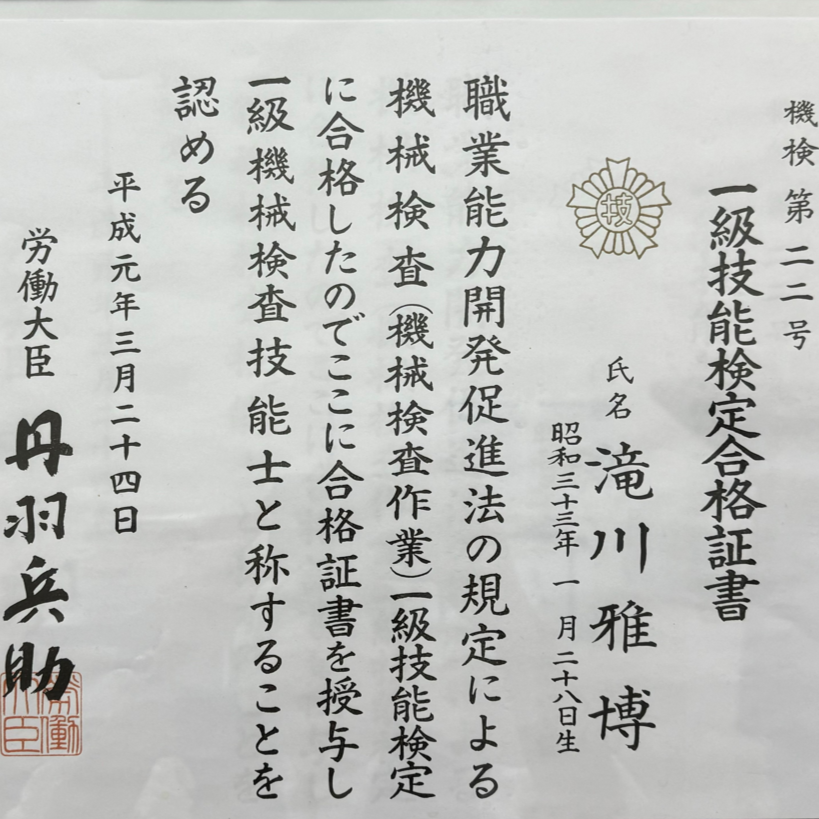 機検第二二号
一級技能検定合格証書
技
氏名 滝川雅博
昭和三十三年一月二十八日生
職業能力開発促進法の規定による
機械検査(機械検査作業)一級技能検定
に合格したのでここに合格証書を授与し
一級機械検査技能士と称することを
認める
平成元年三月二十四日
労働大臣 丹羽兵助
労働大臣